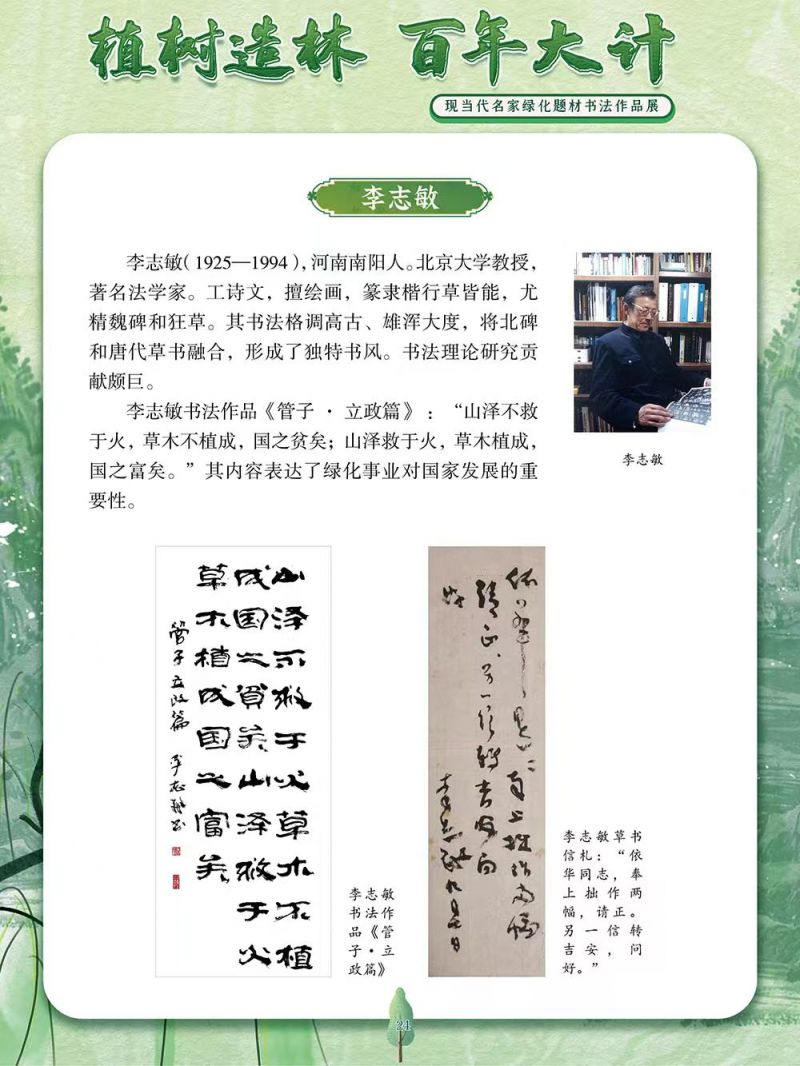 植树造林 百年大计
现当代名家绿化题材书法作品展
李志敏
李志敏（1925—1994），河南南阳人。北京大学教授，
著名法学家。工诗文，擅绘画，篆隶楷行草皆能，尤
精魏碑和狂草。其书法格调高古、雄浑大度，将北碑
和唐代草书融合，形成了独特书风。书法理论研究贡
献颇巨。
李志敏书法作品《管子 · 立政篇》：“山泽不救
于火，草木不植成，国之贫矣；山泽救于火，草木植成，
国之富矣。”其内容表达了绿化事业对国家发展的重
要性。
李志敏
山泽不救于火草木不植
成国之贫矣山泽救于火
草木植成国之富矣
管子立政篇 李志敏书
李志敏
书法作
品《管
子·立
政篇》
依华同志奉上拙作两幅
请正另一信转吉安问
好
李志敏
李志敏草书
信札：“依
华同志，奉
上拙作两
幅，请正。
另一信转
吉安，问
好。”
24